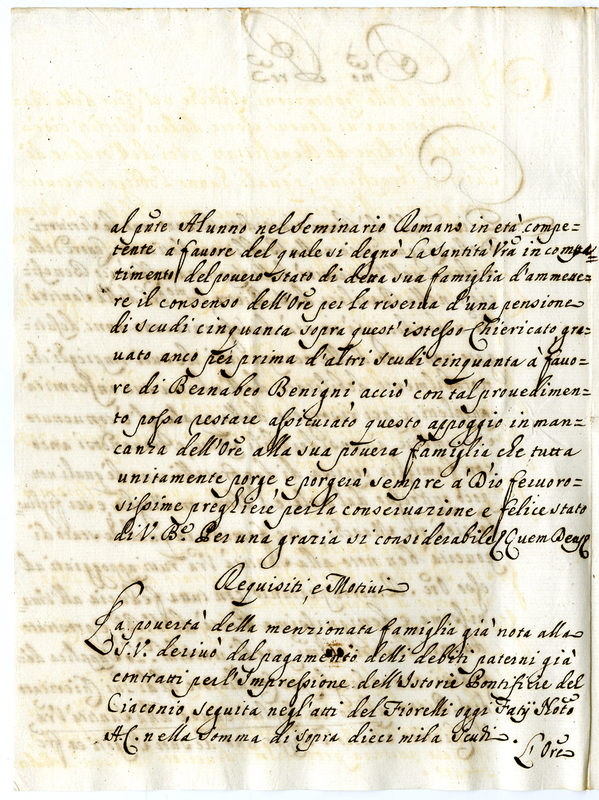 al pñte Alunno nel Seminario Romano in età compe=
tente à fauore del quale si degnò La Santità Vrã in compa=
timento del pouero stato di detta sua famiglia d'ammette=
re il consenso dell'Orẽ per la riserua d'una pensione
di scudi cinquanta sopra quest'istesso Chiericato gra=
uato anco per prima d'altri scudi cinquanta à fauo=
re di Bernabeo Benigni acciò con tal prouedimen=
to possa restare assicurato questo appoggio in man=
canza dell'Orẽ alla sua pouera famiglia che tutta
unitamente porge e porgerà sempre à Dio feruoro=
sissime preghiere per la conseruazione e felice stato
di V. B.e Per una grazia si considerabile Quem Deus
Requisiti, e Motiui
La pouertà della menzionata famiglia già nota alla
S.V. deriuò dal pagamento delli debiti paterni già
contratti per l'Impressione dell'Istorie Pontifizie del
Ciaconio seguita negl'atti del Fiorelli oggi Fatij Noto
A.C. nella somma di sopra dieci mila Scudi.
L'Orẽ